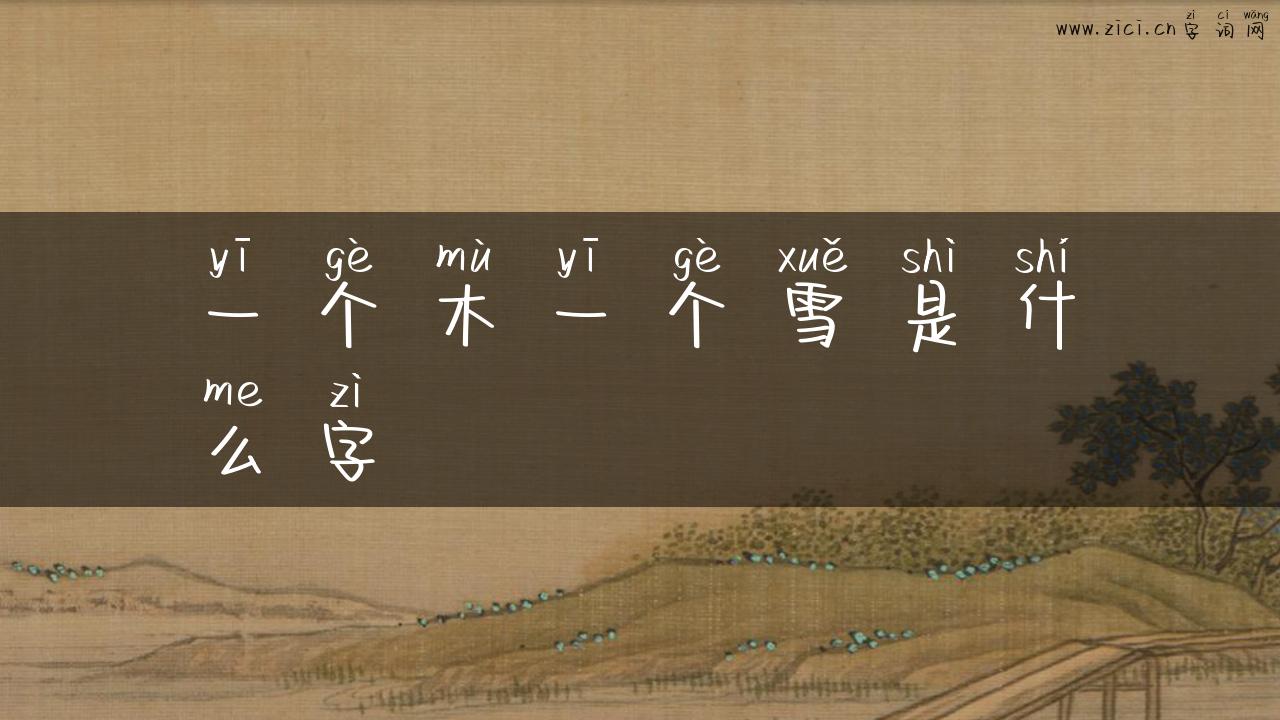 zì cí wǎng
www.zici.cn字词网
yī gè mù yī gè xuě shì shí
一个木一个雪是什
me zì
么字